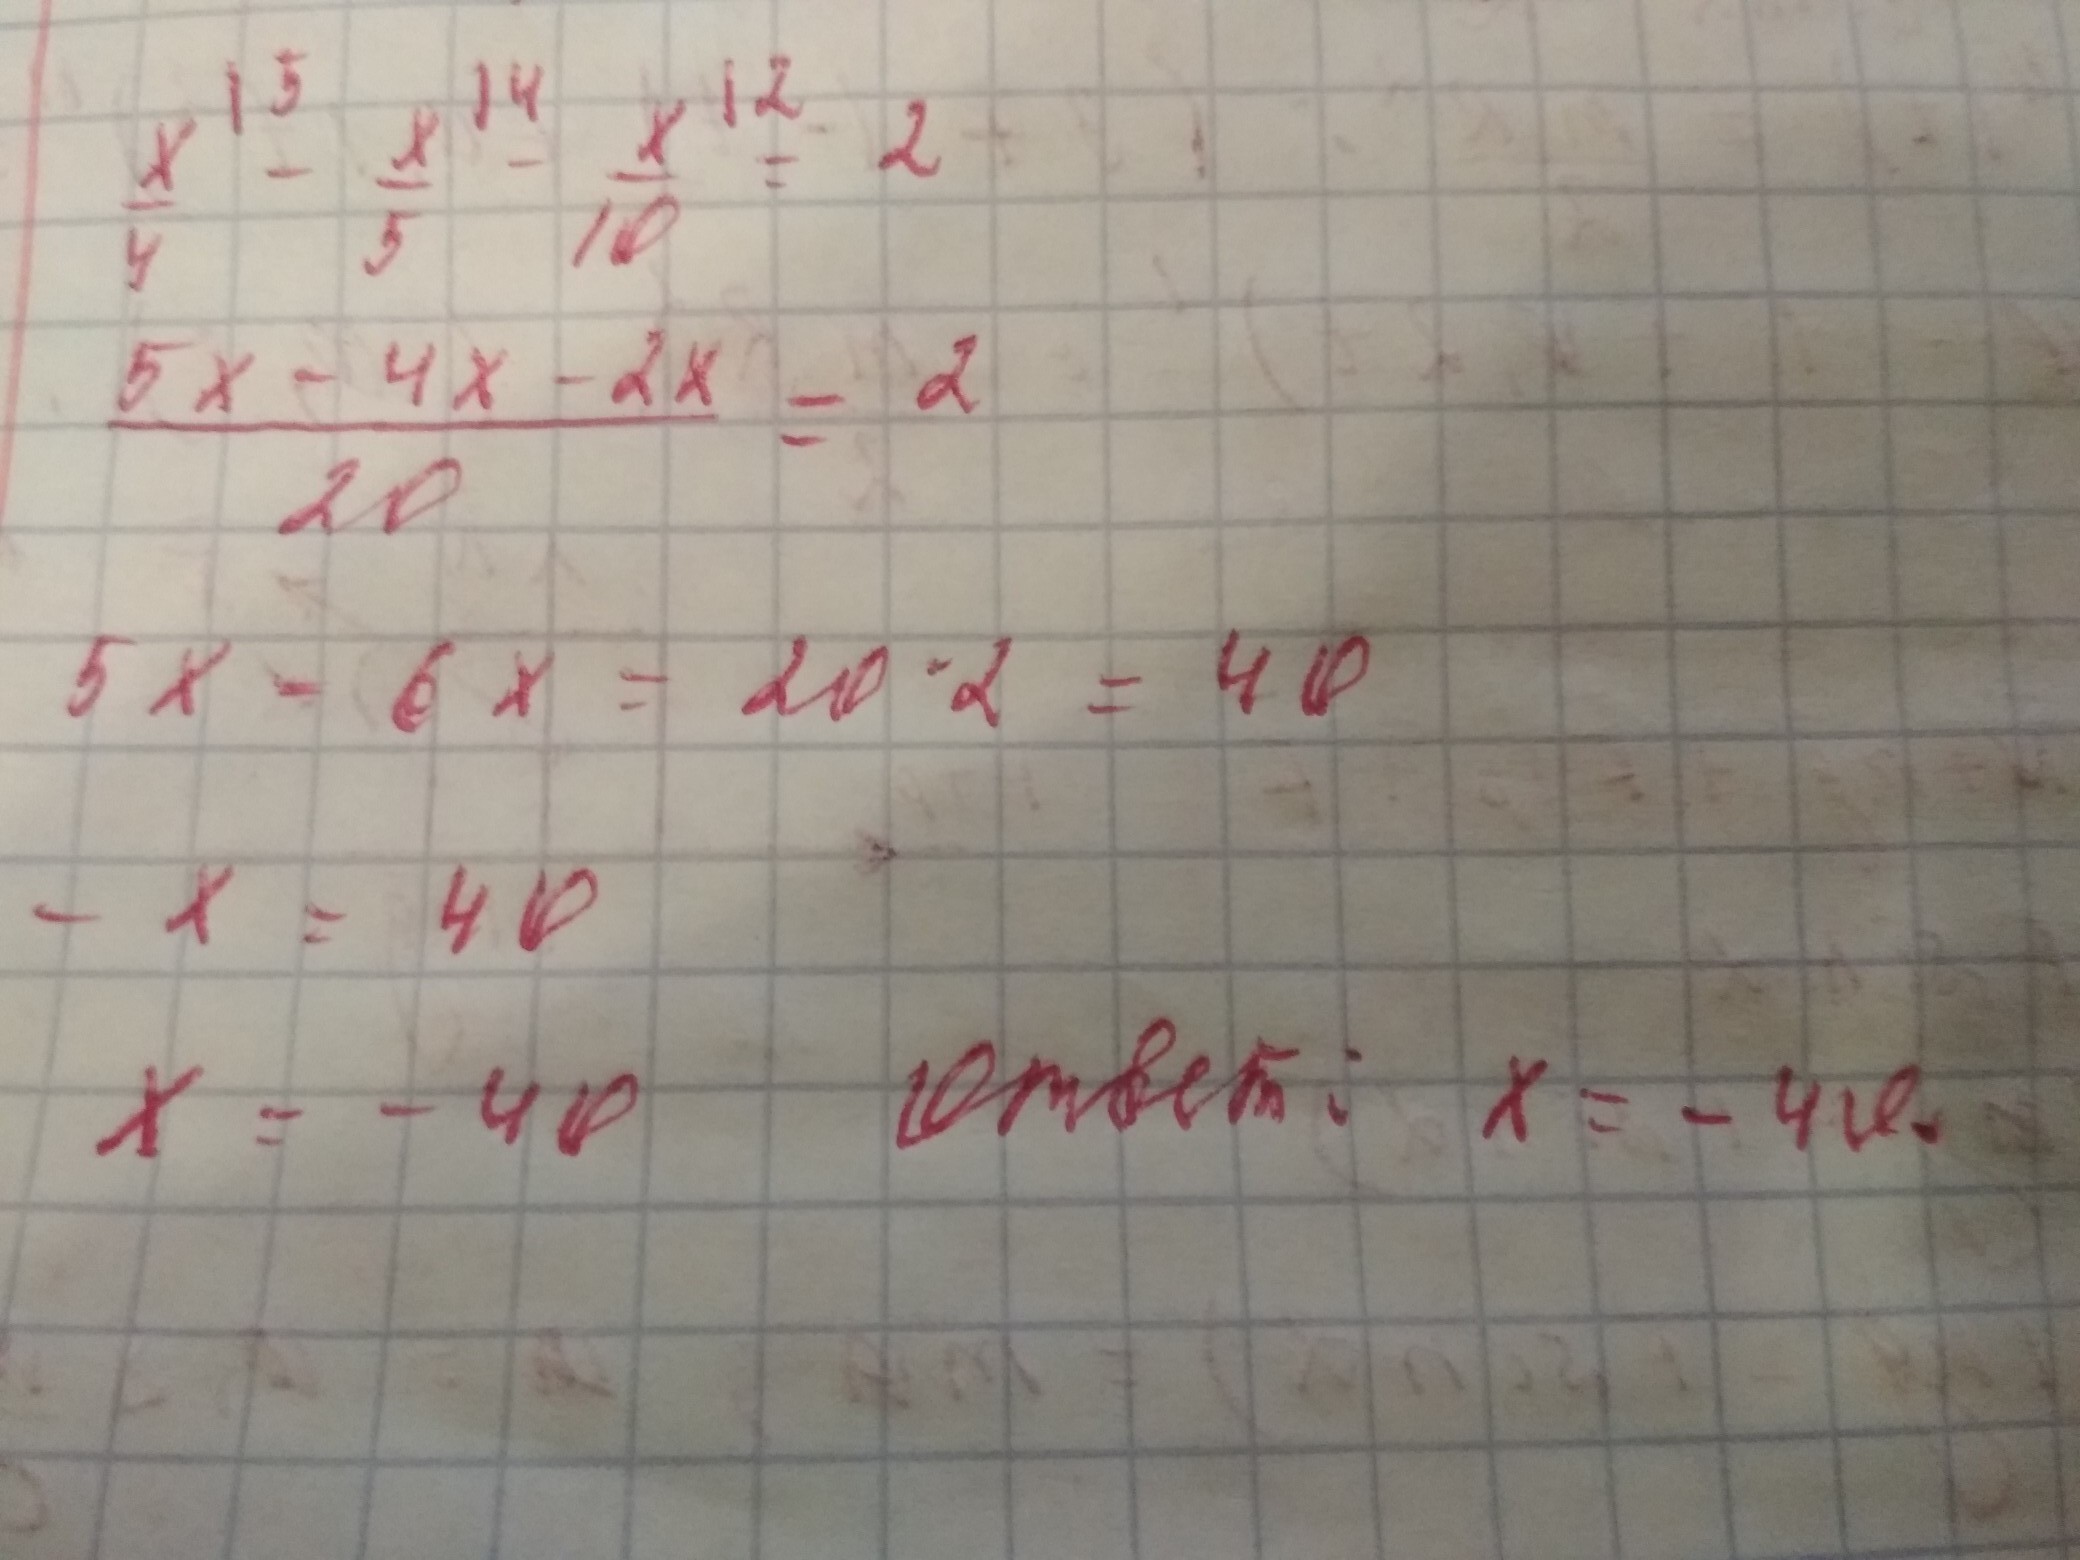 x/4 |5 - x/5 |4 - x/10 |2 = 2
(5x - 4x - 2x)/20 = 2
5x - 6x = 20·2 = 40
- x = 40
x = - 40 Ответ: x = - 40.